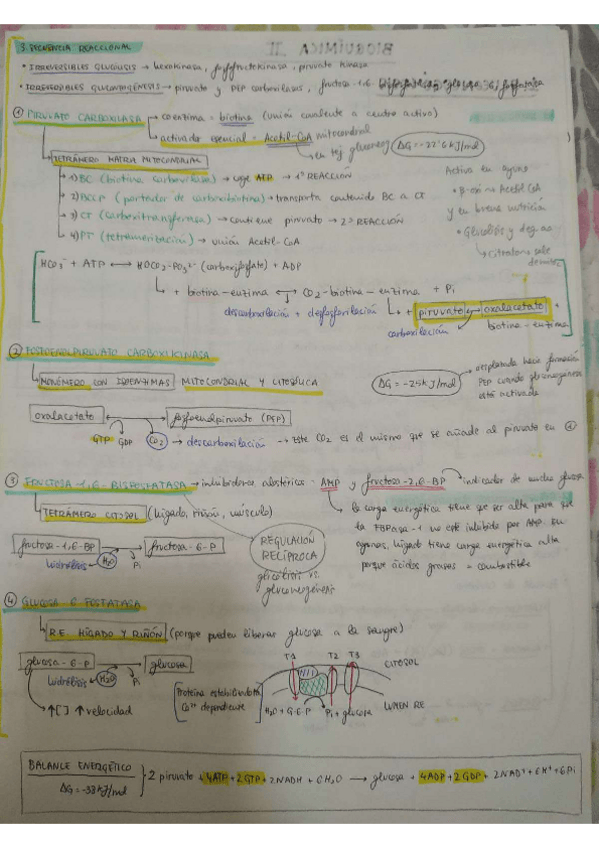 BIOQUÍMICA II
3. SECUENCIA REACCIONAL
• IRREVERSIBLES GLUCÓLISIS → hexokinasa, fosfofructokinasa, piruvato kinasa
• IRREVERSIBLES GLUCONEOGÉNESIS → piruvato y PEP carboxilasas, fructosa-1,6-
① PIRUVATO CARBOXILASA → coenzima = biotina (unión covalente a centro activo)
→ activador esencial = Acetil-CoA mitocondrial
ΔG = -22'6 kJ/mol
TETRÁMERO MATRIZ MITOCONDRIAL
1) BC (biotina carboxilasa) → usa ATP → 1ª REACCIÓN
2) BCCP (portador de carboxibiotina) → transporta contenido BC a CT
3) CT (carboxitransferasa) → contiene piruvato → 2ª REACCIÓN
4) PT (tetramerización) → unión Acetil-CoA
Activa en ayuno
• β-oxi → Acetil CoA
y en buena nutrición
• Glucólisis y deg. aa
↳ citrato sale
HCO₃⁻ + ATP ⟷ HOCO₂-PO₃²⁻ (carboxifosfato) + ADP
↳ + biotina-enzima ⟷ CO₂-biotina-enzima + Pi
descarboxilación + desfosforilación
↳ + piruvato ⟷ oxalacetato +
carboxilación
biotina-enzima
② FOSFOENOLPIRUVATO CARBOXICINASA
MONÓMERO CON ISOENZIMAS MITOCONDRIAL Y CITOSÓLICA
ΔG = -2'9 kJ/mol
desplazada hacia formación
PEP cuando gluconeogénesis
está activada
oxalacetato ⟷ fosfoenolpiruvato (PEP)
GTP GDP CO₂ → descarboxilación → Este CO₂ es el mismo que se añade al piruvato en ①
③ FRUCTOSA 1,6-BISFOSFATASA → inhibidores alostéricos = AMP y fructosa-2,6-BP → indicador de mucha glucosa
TETRÁMERO CITOSOL (hígado, riñón, músculo)
↳ la carga energética tiene que ser alta para que
la FBPasa-1 no esté inhibida por AMP. En
ayunas, hígado tiene carga energética alta
porque ácidos grasos = combustible
fructosa-1,6-BP → fructosa-6-P
hidrólisis H₂O Pi
REGULACIÓN
RECÍPROCA
glucólisis vs.
gluconeogénesis
④ GLUCOSA 6-FOSFATASA
RE. HÍGADO Y RIÑÓN (porque pueden liberar glucosa a la sangre)
glucosa-6-P → glucosa
hidrólisis H₂O Pi
↑[ ] ↑velocidad
Proteína estabilizadora
Ca²⁺ dependiente
T1 T2 T3
CITOSOL
H₂O + G-6-P Pi + glucosa LUMEN RE
BALANCE ENERGÉTICO
2 piruvato + 4ATP + 2GTP + 2NADH + 6H₂O → glucosa + 4ADP + 2GDP + 2NAD⁺ + 6H⁺ + 6Pi
ΔG = -38 kJ/mol